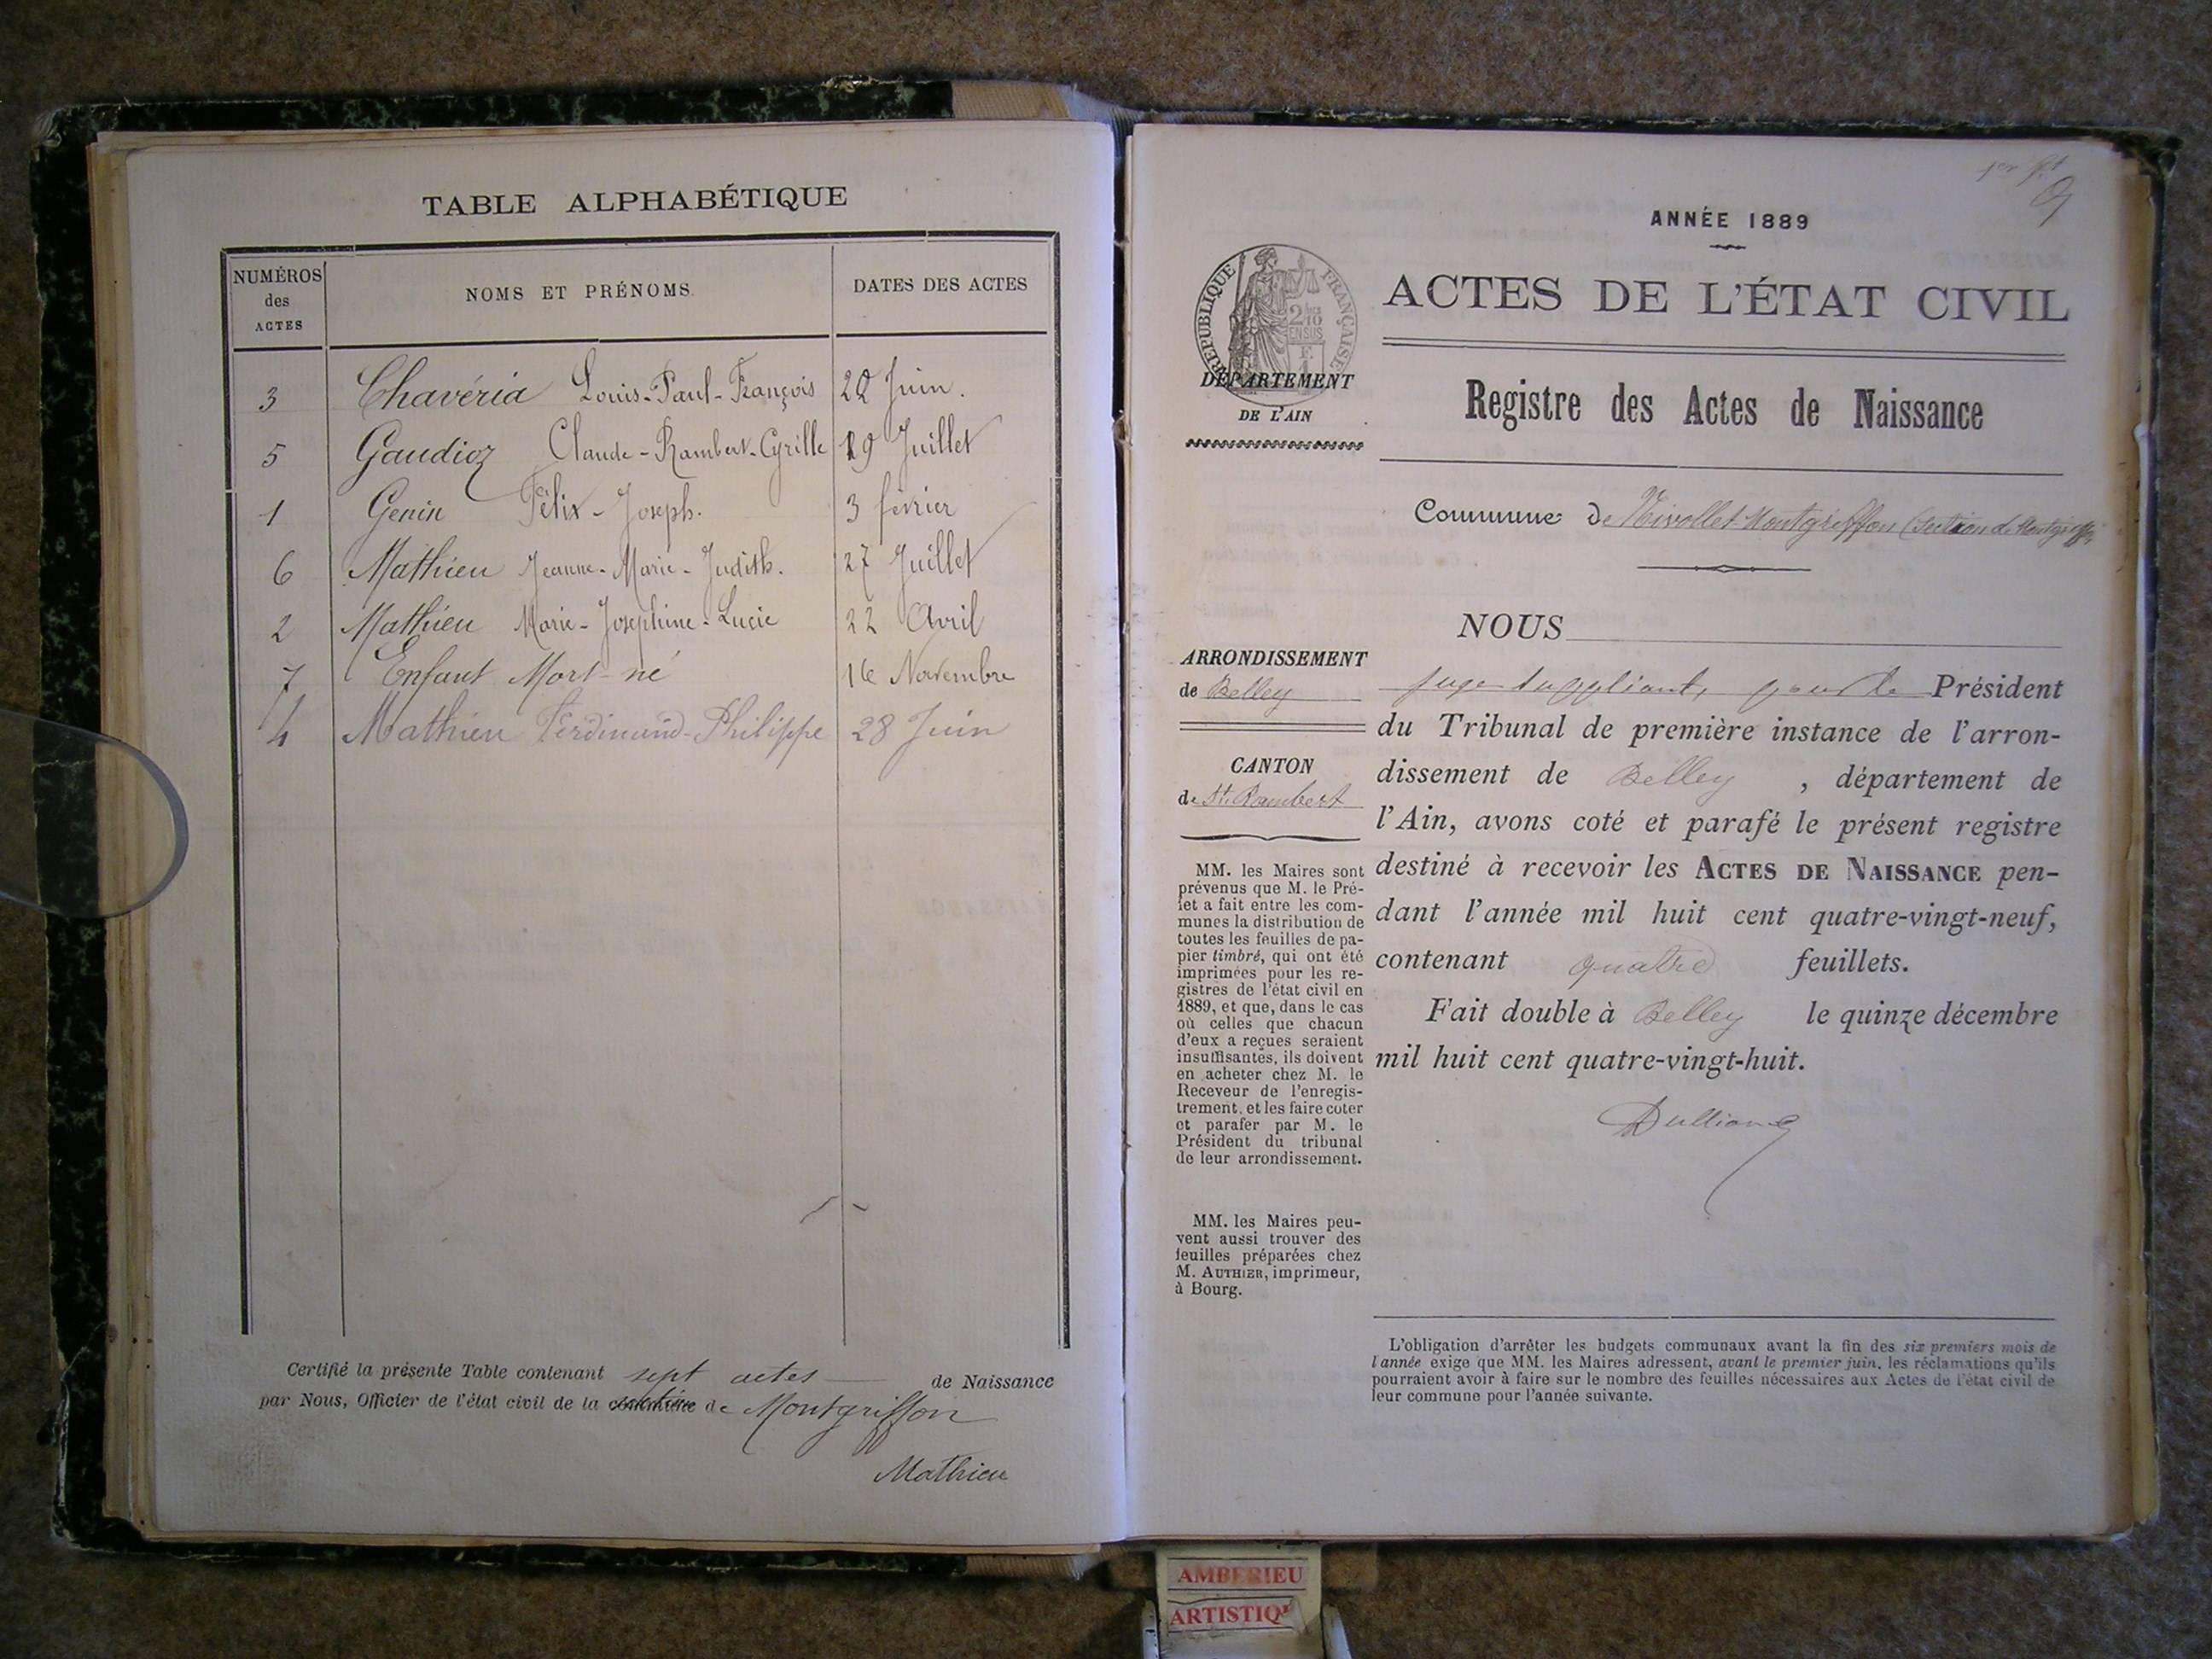 TABLE ALPHABÉTIQUE
NUMÉROS des ACTES
NOMS ET PRÉNOMS
DATES DES ACTES
3 Chavéria Louis-Paul-François 22 Juin.
5 Gaudioz Claude-Rambert-Cyrille 19 Juillet
1 Genin Félix-Joseph. 3 février
6 Mathieu Jeanne-Marie-Judith. 27 Juillet
2 Mathieu Marie-Josephine-Lucie 22 Avril
7 Enfant Mort-né 16 Novembre
4 Mathieu Ferdinand-Philippe 28 Juin
Certifié la présente Table contenant sept actes de Naissance
par Nous, Officier de l'état civil de la section de Montgriffon
Mathieu
1er
ANNÉE 1889
RÉPUBLIQUE FRANÇAISE
ACTES DE L'ÉTAT CIVIL
DÉPARTEMENT
DE L'AIN
Registre des Actes de Naissance
Commune de Nivollet-Montgriffon (Section de Montgriffon
NOUS
ARRONDISSEMENT
de Belley
CANTON
de St. Rambert
MM. les Maires sont
prévenus que M. le Pré-
fet a fait entre les com-
munes la distribution de
toutes les feuilles de pa-
pier timbré, qui ont été
imprimées pour les re-
gistres de l'état civil en
1889, et que, dans le cas
où celles que chacun
d'eux a reçues seraient
insuffisantes, ils doivent
en acheter chez M. le
Receveur de l'enregis-
trement, et les faire coter
et parafer par M. le
Président du tribunal
de leur arrondissement.
MM. les Maires peu-
vent aussi trouver des
feuilles préparées chez
M. AUTHIER, imprimeur,
à Bourg.
juge suppléant, pour le Président
du Tribunal de première instance de l'arron-
dissement de Belley , département de
l'Ain, avons coté et parafé le présent registre
destiné à recevoir les ACTES DE NAISSANCE pen-
dant l'année mil huit cent quatre-vingt-neuf,
contenant quatre feuillets.
Fait double à Belley le quinze décembre
mil huit cent quatre-vingt-huit.
L'obligation d'arrêter les budgets communaux avant la fin des six premiers mois de
l'année exige que MM. les Maires adressent, avant le premier juin, les réclamations qu'ils
pourraient avoir à faire sur le nombre des feuilles nécessaires aux Actes de l'état civil de
leur commune pour l'année suivante.
AMBERIEU
ARTISTIQ